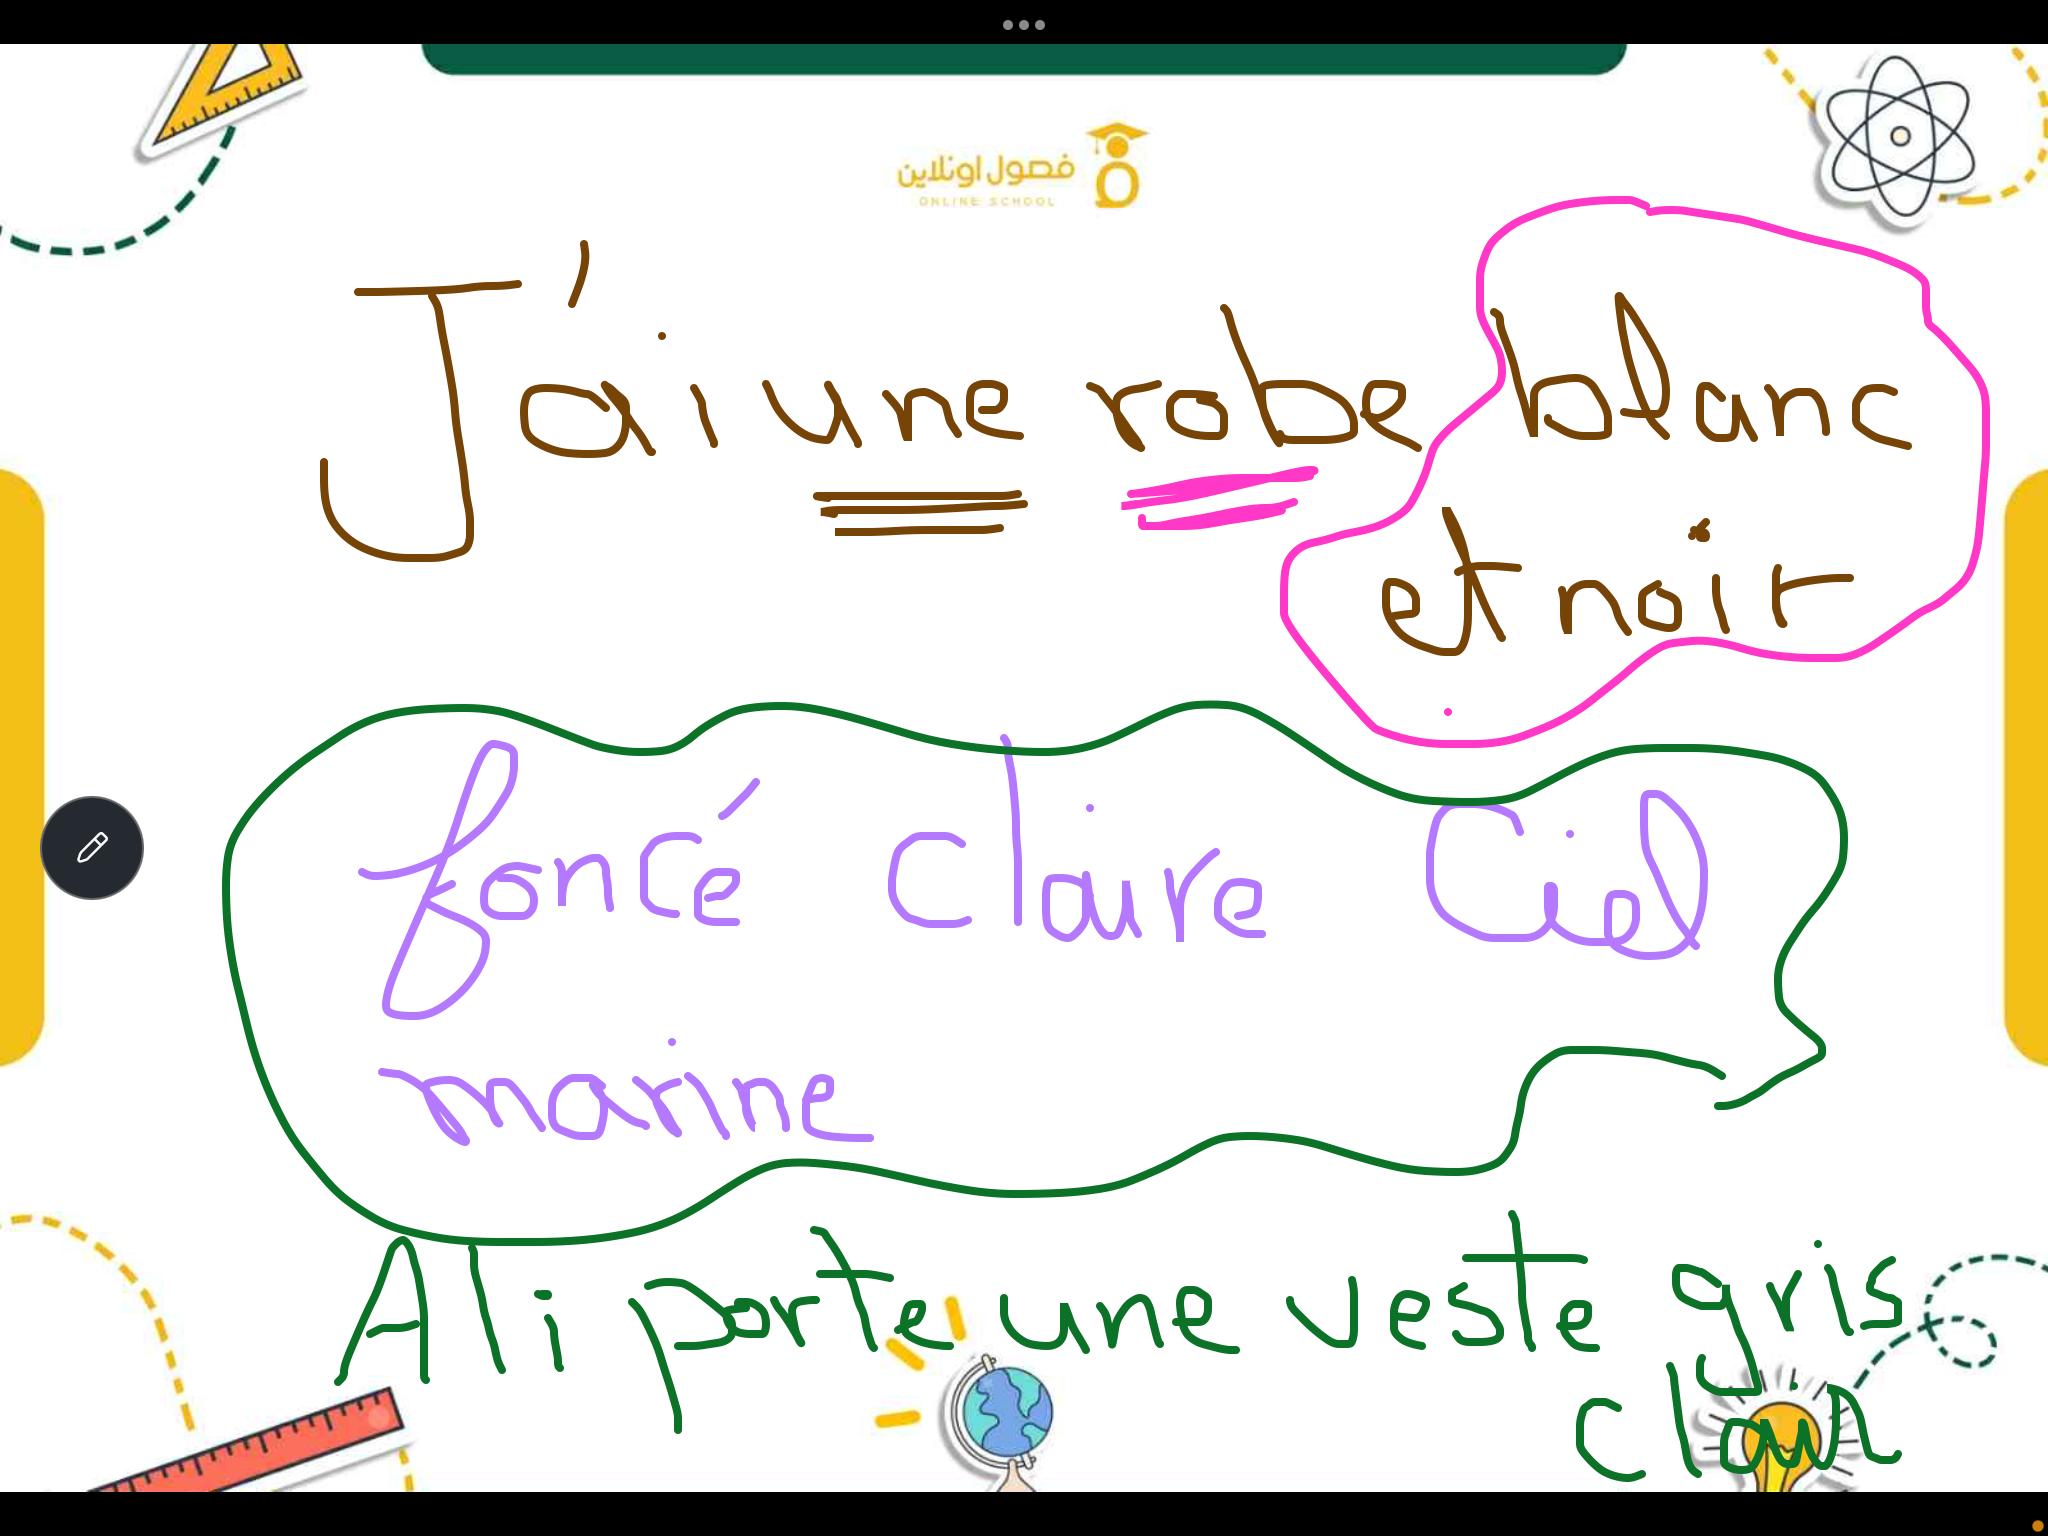 فصول اونلاين
ONLINE SCHOOL
J'ai une robe blanc
et noir
foncé claire Ciel
marine
Ali porte une veste gris
clair